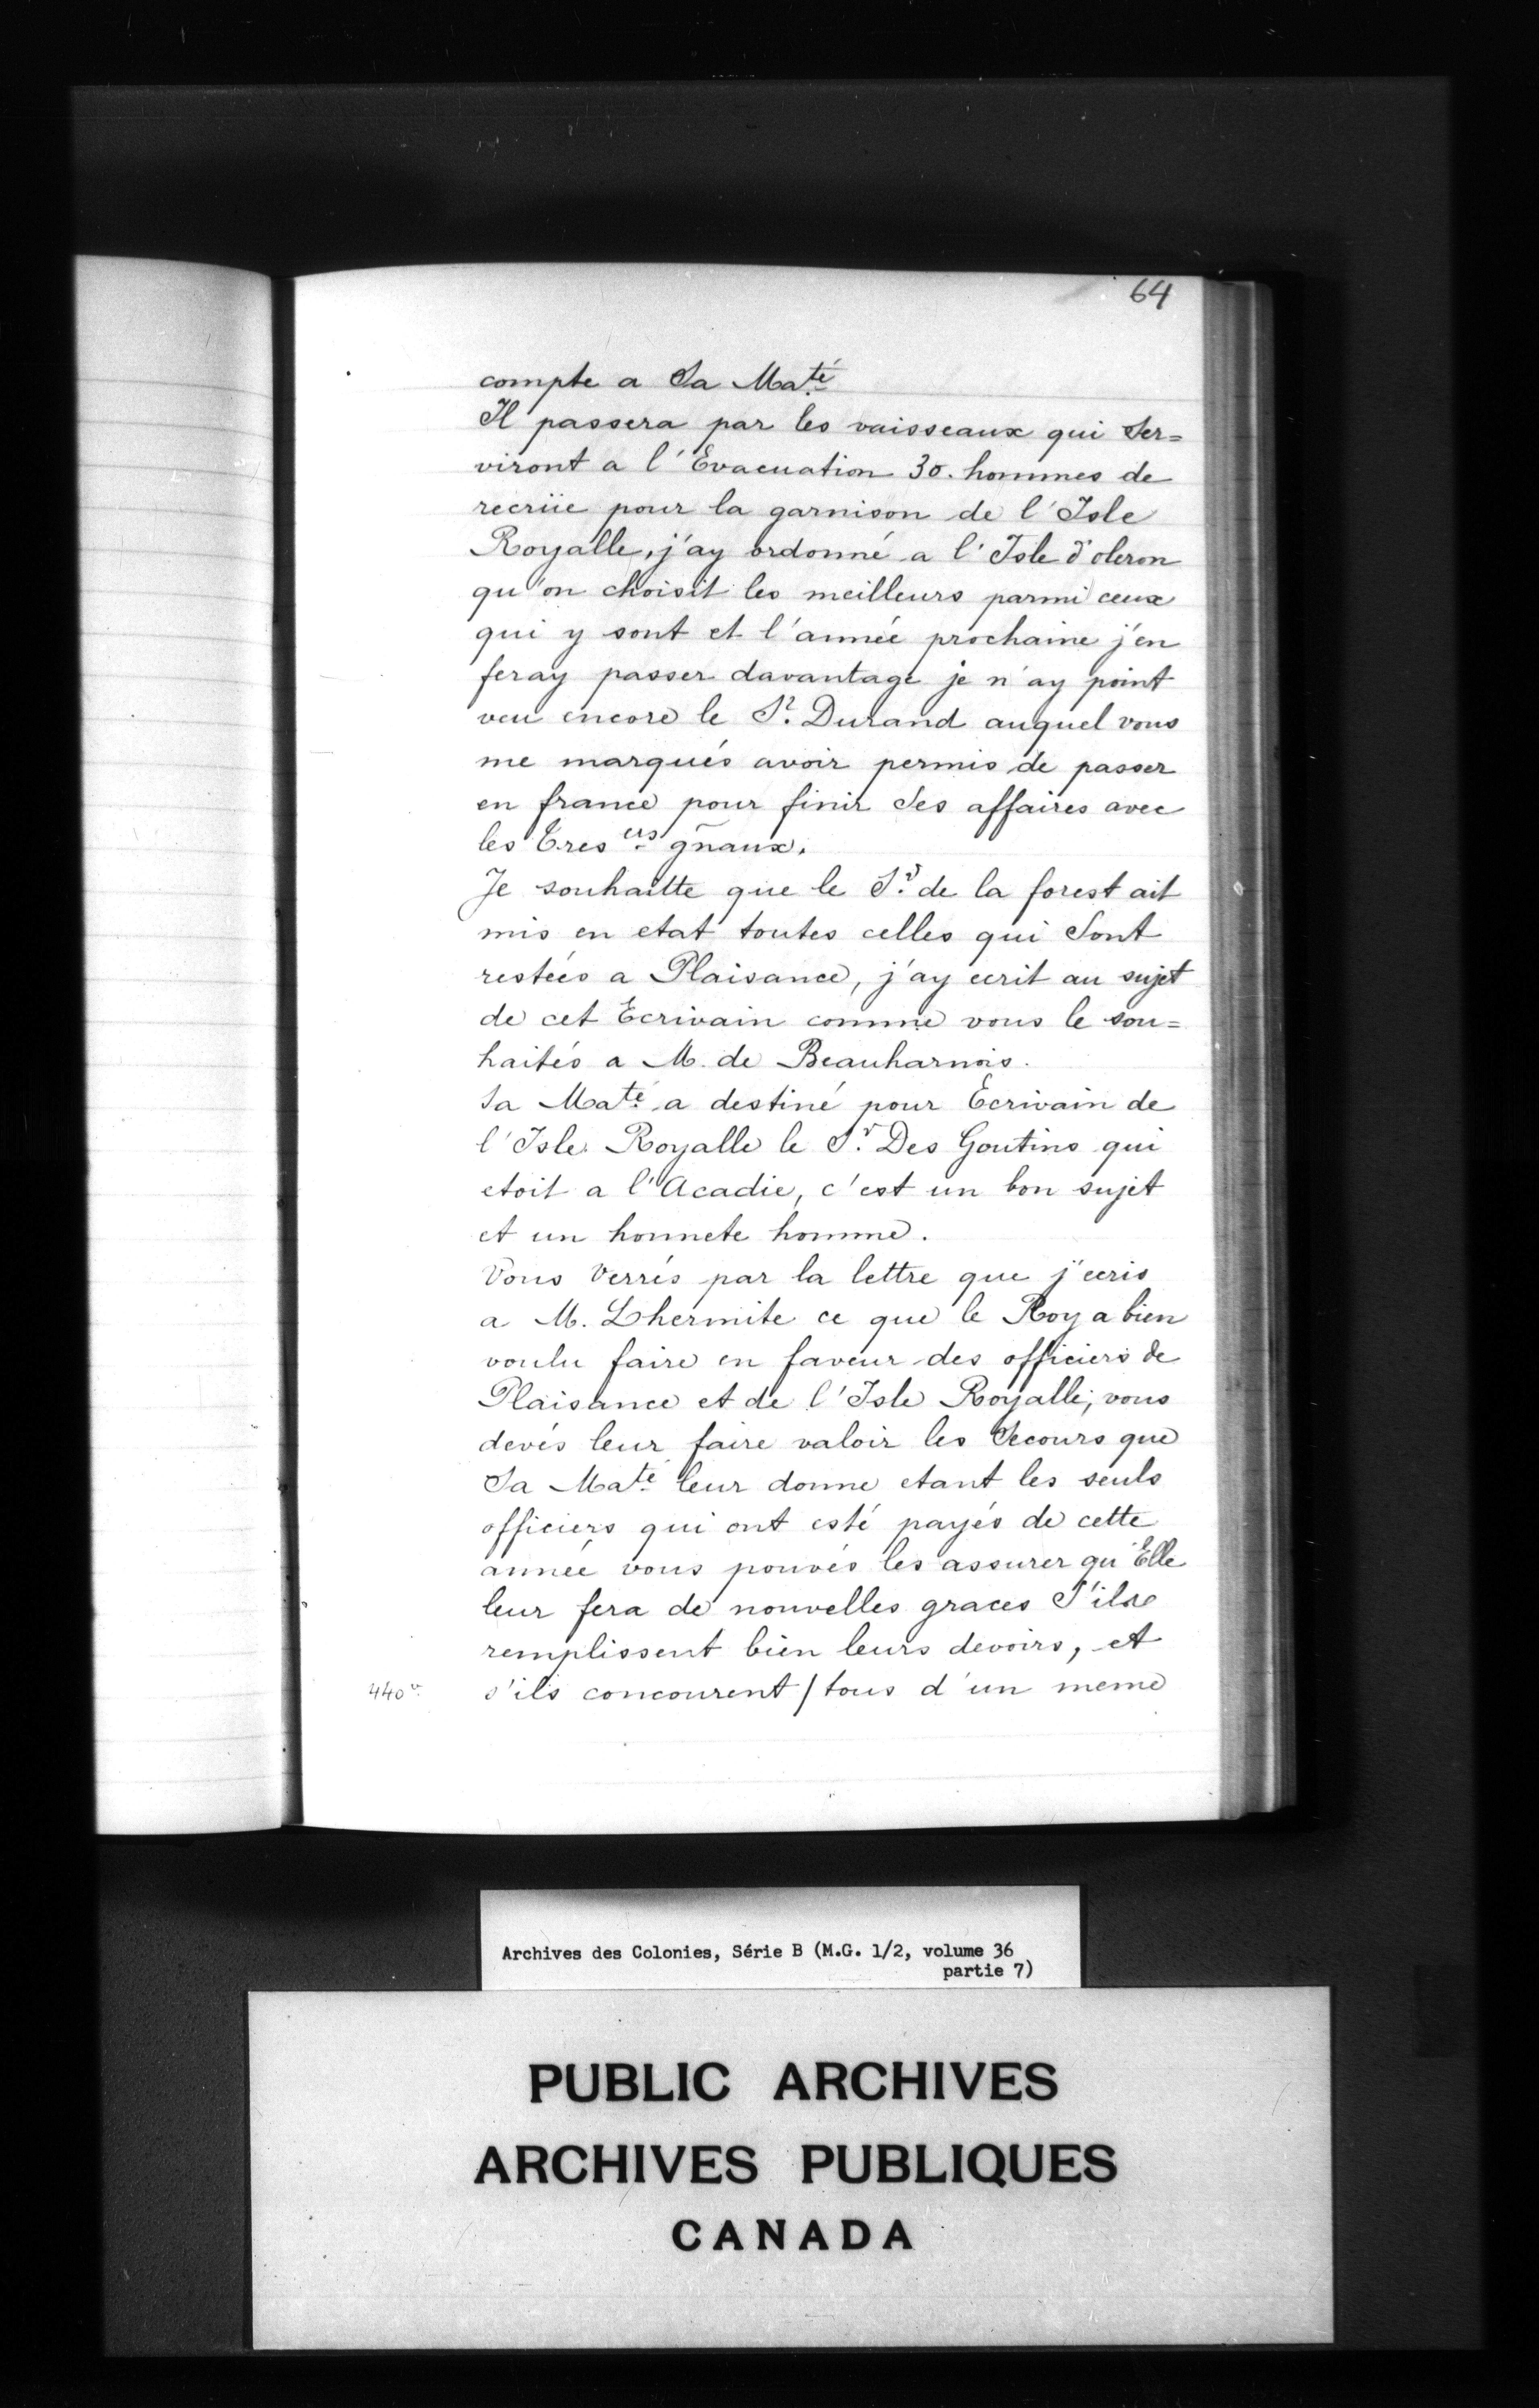 64
compte a Sa Ma.té
Il passera par les vaisseaux qui Ser=
viront a l'Evacuation 30. hommes de
recrüe pour la garnison de l'Isle
Royalle, j'ay ordonné a l'Isle d'oleron
qu'on choisit les meilleurs parmi ceux
qui y sont et l'année prochaine j'en
feray passer davantage je n'ay point
veu encore le S.r Durand auquel vous
me marqués avoir permis de passer
en france pour finir Ses affaires avec
les Tres.ers gñaux.
Je souhaitte que le S.r de la forest ait
mis en etat toutes celles qui Sont
restées a Plaisance, j'ay ecrit au sujet
de cet Ecrivain comme vous le sou=
haités a M. de Beauharnois.
Sa Ma.té a destiné pour Ecrivain de
l'Isle Royalle le S.r Des Goutins qui
etoit a l'Acadie, c'est un bon sujet
et un honnete homme.
Vous Verrés par la lettre que j'ecris
a M. Lhermite ce que le Roy a bien
voulu faire en faveur des officiers de
Plaisance et de l'Isle Royalle; vous
devés leur faire valoir les Secours que
Sa Ma.té leur donne etant les seuls
officiers qui ont esté payés de cette
année vous pouvés les assurer qu'Elle
leur fera de nouvelles graces S'ils
remplissent bien leurs devoirs, et
440 v. s'ils concourent / tous d'un meme
Archives des Colonies, Série B (M.G. 1/2, volume 36
partie 7)
PUBLIC ARCHIVES
ARCHIVES PUBLIQUES
CANADA